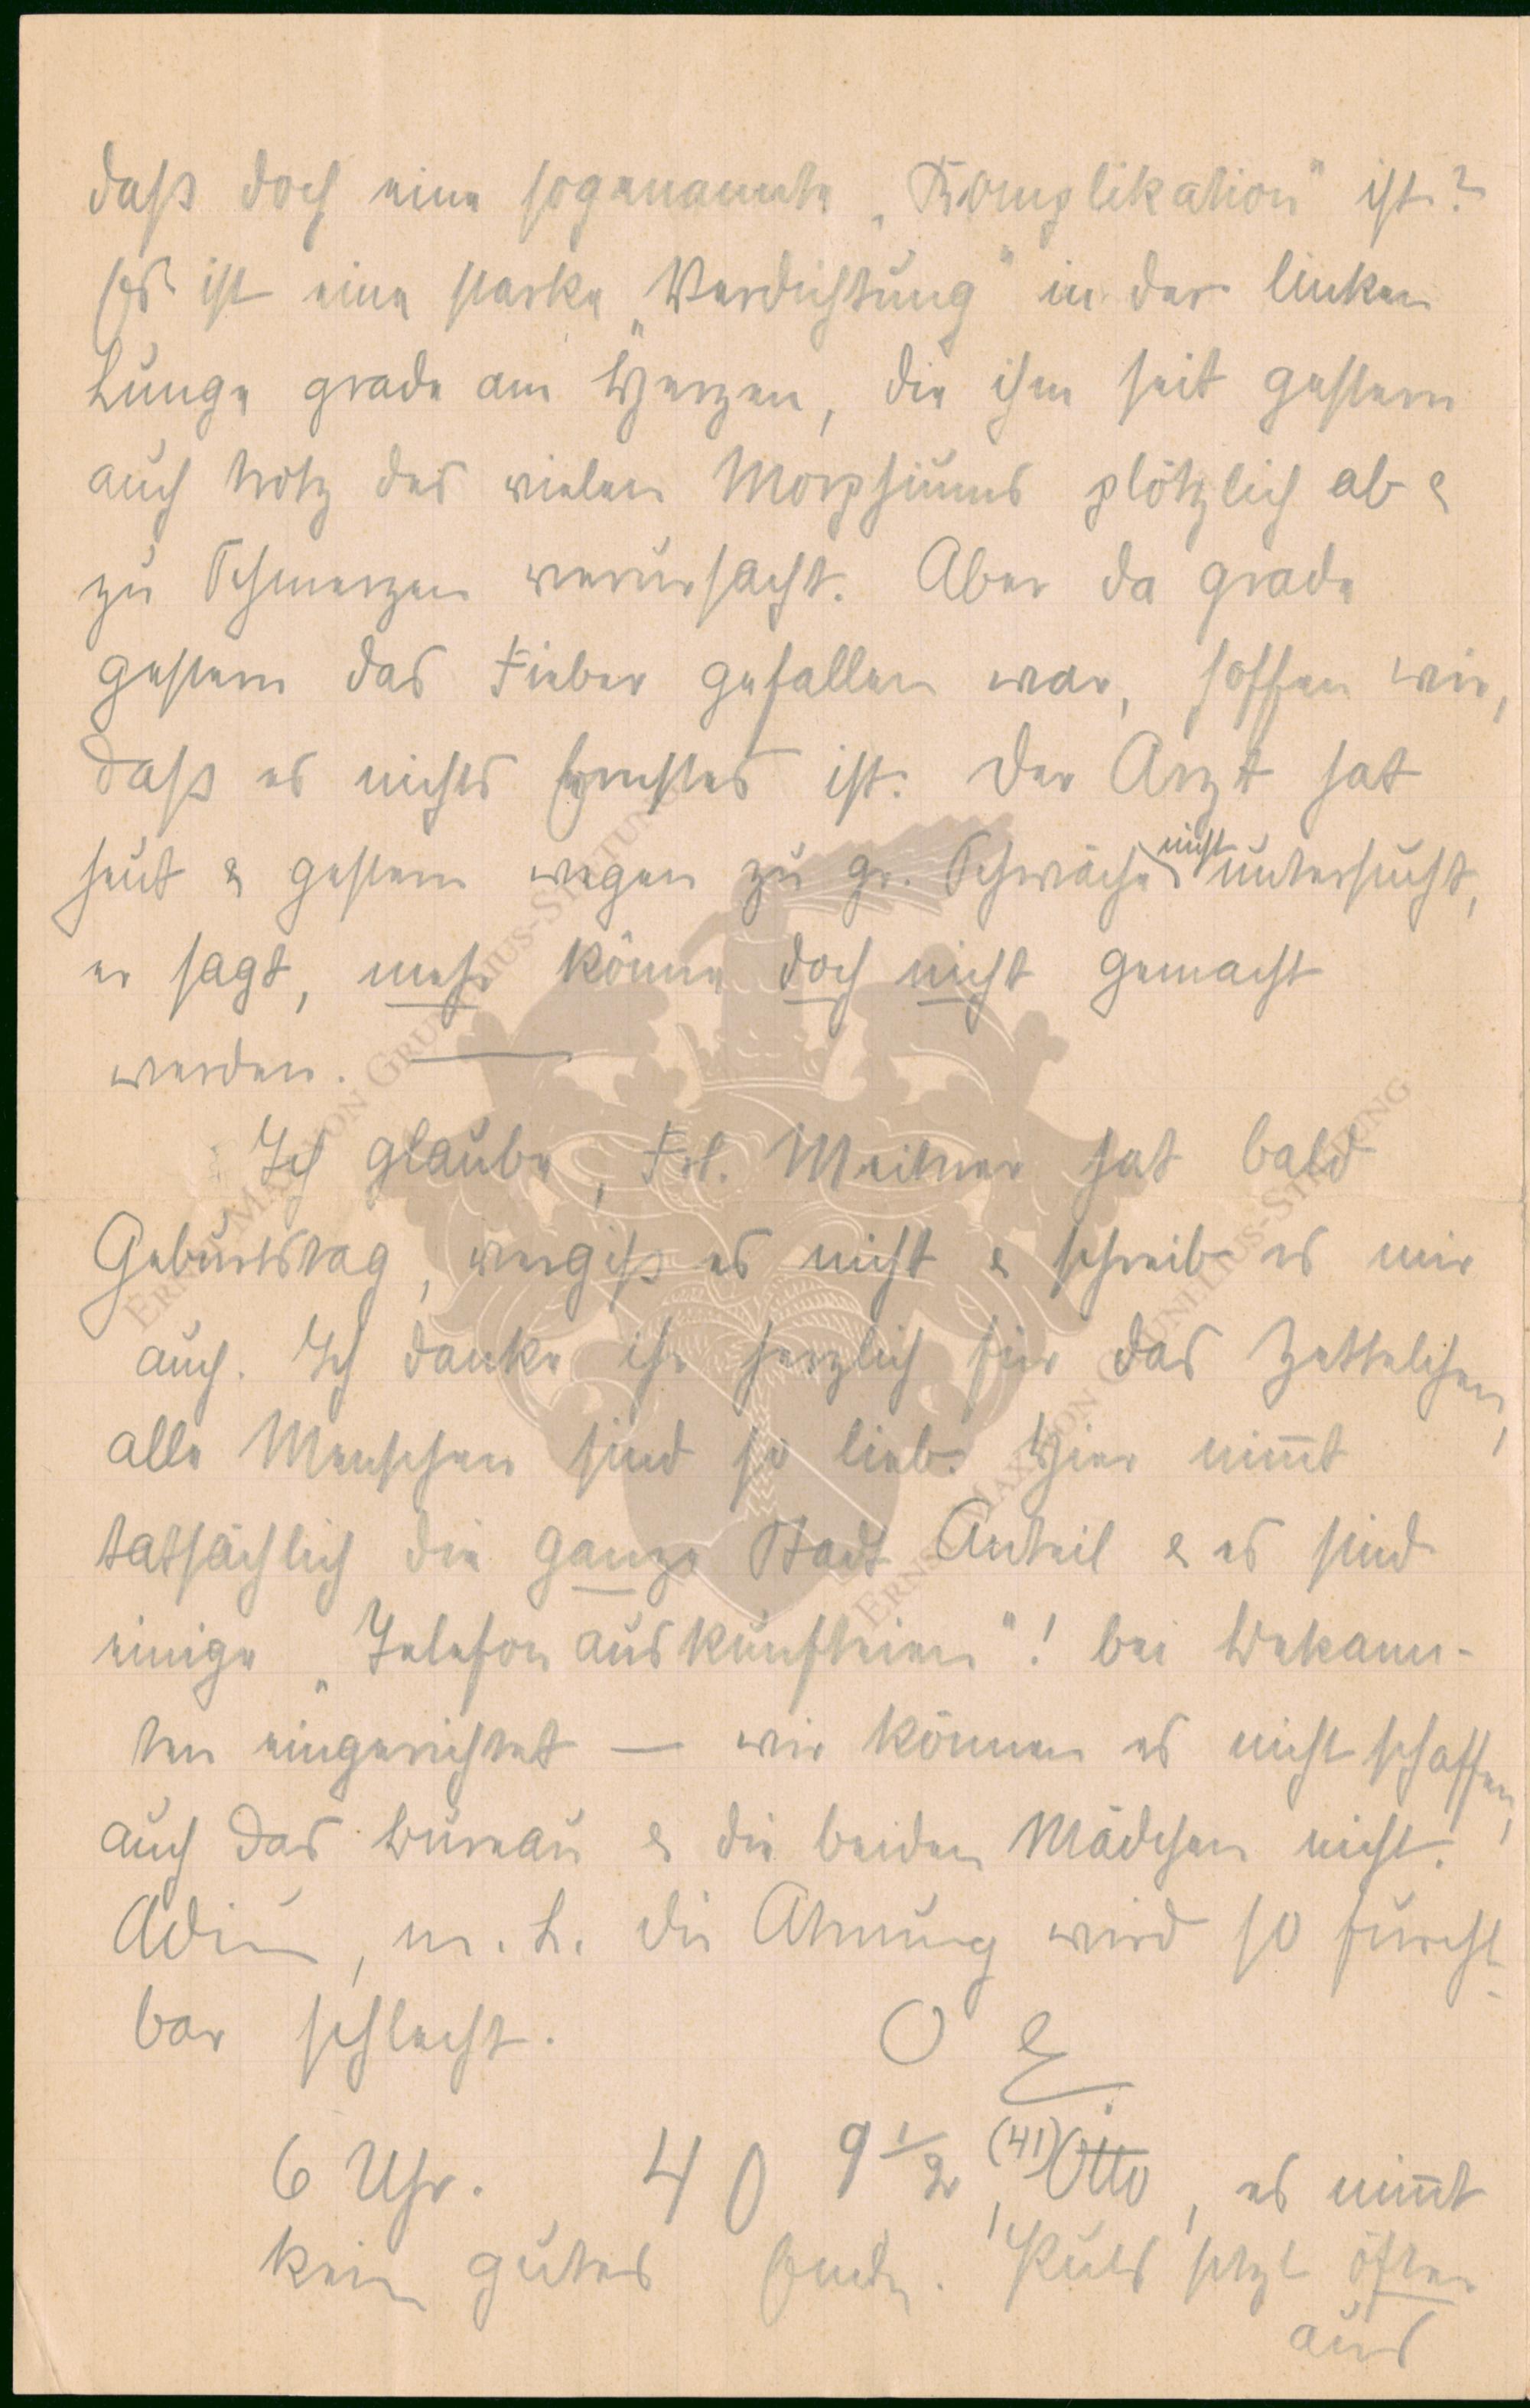 daß doch eine sogenannte „Komplikation" ist?
Es ist eine starke „Verdichtung" in der linken
Lunge grade am Herzen, die ihm seit gestern
auch trotz des vielen Morphiums plötzlich ab &
zu Schmerzen verursacht. Aber da grade
gestern das Fieber gefallen war, hoffen wir,
daß es nichts Ernstes ist. Der Arzt hat
heut & gestern wegen zu gr. Schwäche nicht untersucht,
er sagt, mehr könne doch nicht gemacht
werden. —
Ich glaube, Frl. Meitner hat bald
Geburtstag, vergiß es nicht & schreib es mir
auch. Ich danke ihr herzlich für das Zettelchen,
alle Menschen sind so lieb. Hier nim̅t
tatsächlich die ganze Stadt Anteil & es sind
einige „Telefonauskunfteien"! bei Bekann-
ten eingerichtet — wir können es nicht schaffen,
auch das Bureau & die beiden Mädchen nicht.
Adieu, m. L. die Atmung wird so furcht-
bar schlecht.
O E.
6 Uhr. 40 9 1/2 (41) Otto, es nim̅t
kein gutes Ende. Puls setzt öfter
aus
ERNST MAX VON GRUNELIUS-STIFTUNG
ERNST MAX VON GRUNELIUS-STIFTUNG